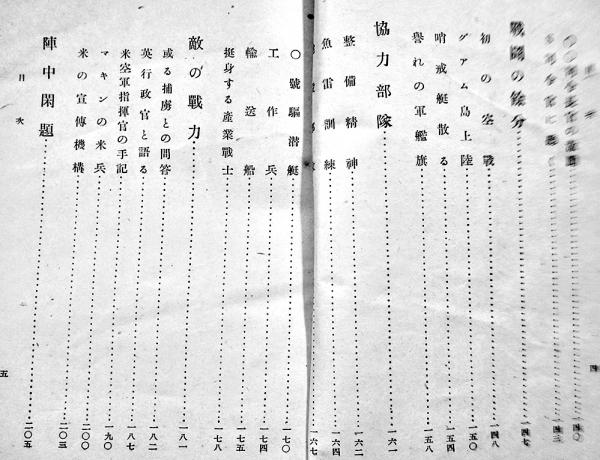 四
一四〇
一四三
戰鬪の餘分……一四七
初の空戰……一四八
グアム島上陸……一五〇
哨戒艇散る……一五四
譽れの軍艦旗……一五八
協力部隊……一六一
整備精神……一六二
魚雷訓練……一六四
一六七
〇號驅潜艇……一七〇
工作兵……一七四
輸送船……一七五
挺身する産業戰士……一七八
敵の戰力……一八一
或る捕虜との問答……一八二
英行政官と語る……一八七
米空軍指揮官の手記……一九〇
マキンの米兵……二〇〇
米の宣傳機構……二〇三
陣中閑題……二〇五
目次
五